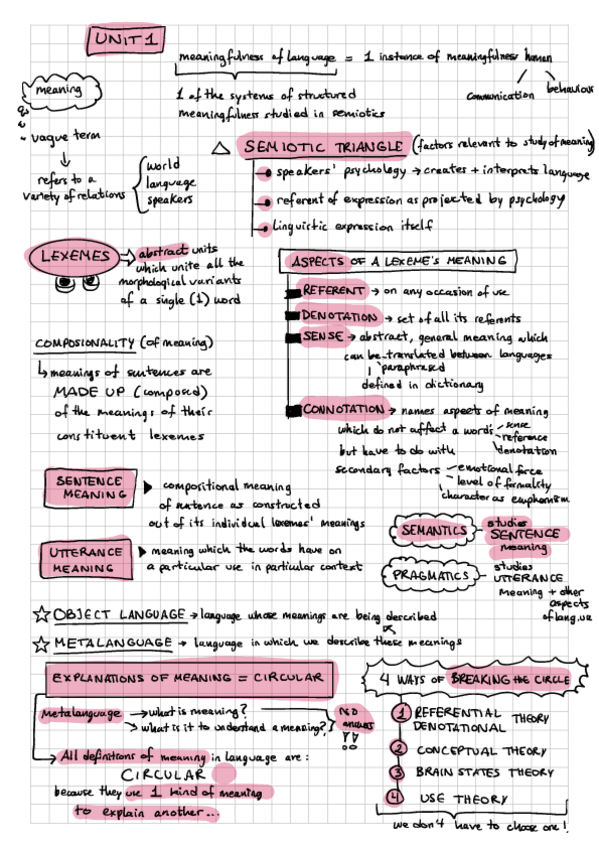 UNIT 1
meaningfulness of language = 1 instance of meaningfulness human
communication behaviour
1 of the systems of structured
meaningfulness studied in semiotics
meaning
vague term
refers to a
variety of relations
world
language
speakers
SEMIOTIC TRIANGLE (factors relevant to study of meaning)
speakers' psychology → creates + interprets language
referent of expression as projected by psychology
linguistic expression itself
LEXEMES ⇒ abstract units
which unite all the
morphological variants
of a single (1) word
ASPECTS OF A LEXEME'S MEANING
REFERENT → on any occasion of use
DENOTATION → set of all its referents
SENSE → abstract, general meaning which
can be translated between languages
paraphrased
defined in dictionary
CONNOTATION → names aspects of meaning
which do not affect a word's sense
reference
denotation
but have to do with
secondary factors emotional force
level of formality
character as euphemism
COMPOSIONALITY (of meaning)
↳ meanings of sentences are
MADE UP (composed)
of the meanings of their
constituent lexemes
SENTENCE
MEANING
compositional meaning
of sentence as constructed
out of its individual lexemes' meanings
UTTERANCE
MEANING
meaning which the words have on
a particular use in particular context
SEMANTICS studies
SENTENCE
meaning
PRAGMATICS studies
UTTERANCE
meaning + other
aspects
of lang.use
☆ OBJECT LANGUAGE → language whose meanings are being described
☆ METALANGUAGE → language in which we describe these meanings
EXPLANATIONS OF MEANING = CIRCULAR
Metalanguage → what is meaning?
what is it to understand a meaning?
NO
answer
!!
→ All definitions of meaning in language are:
CIRCULAR
because they use 1 kind of meaning
to explain another...
4 WAYS OF BREAKING the CIRCLE
1 REFERENTIAL THEORY
DENOTATIONAL
2 CONCEPTUAL THEORY
3 BRAIN STATES THEORY
4 USE THEORY
we don't have to choose one!